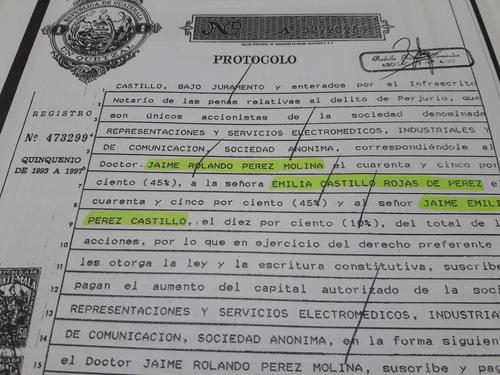 REPUBLICA DE GUATEMALA
UN QUETZAL
Nº A
PROTOCOLO
ABOGADO
REGISTRO
Nº 473299
QUINQUENIO
DE 1993 A 1997
CASTILLO, BAJO JURAMENTO y enterados por el Infrascrito
2 Notario de las penas relativas al delito de Perjurio, que
3 son unicos accionistas de la sociedad denominada
4 REPRESENTACIONES Y SERVICIOS ELECTROMEDICOS, INDUSTRIALES Y
5 DE COMUNICACION, SOCIEDAD ANONIMA, correspondiéndole al
6 Doctor JAIME ROLANDO PEREZ MOLINA el cuarenta y cinco por
7 ciento (45%), a la señora EMILIA CASTILLO ROJAS DE PEREZ
8 cuarenta y cinco por ciento (45%) y al señor JAIME EMILI
9 PEREZ CASTILLO, el diez por ciento (10%), del total de l
10 acciones, por lo que en ejercicio del derecho preferente
11 les otorga la ley y la escritura constitutiva, suscribe
12 pagan el aumento del capital autorizado de la soci
13 REPRESENTACIONES Y SERVICIOS ELECTROMEDICOS, INDUSTRIA
14 DE COMUNICACION, SOCIEDAD ANONIMA, en la forma siguient
15 el Doctor JAIME ROLANDO PEREZ MOLINA, suscribe y pa